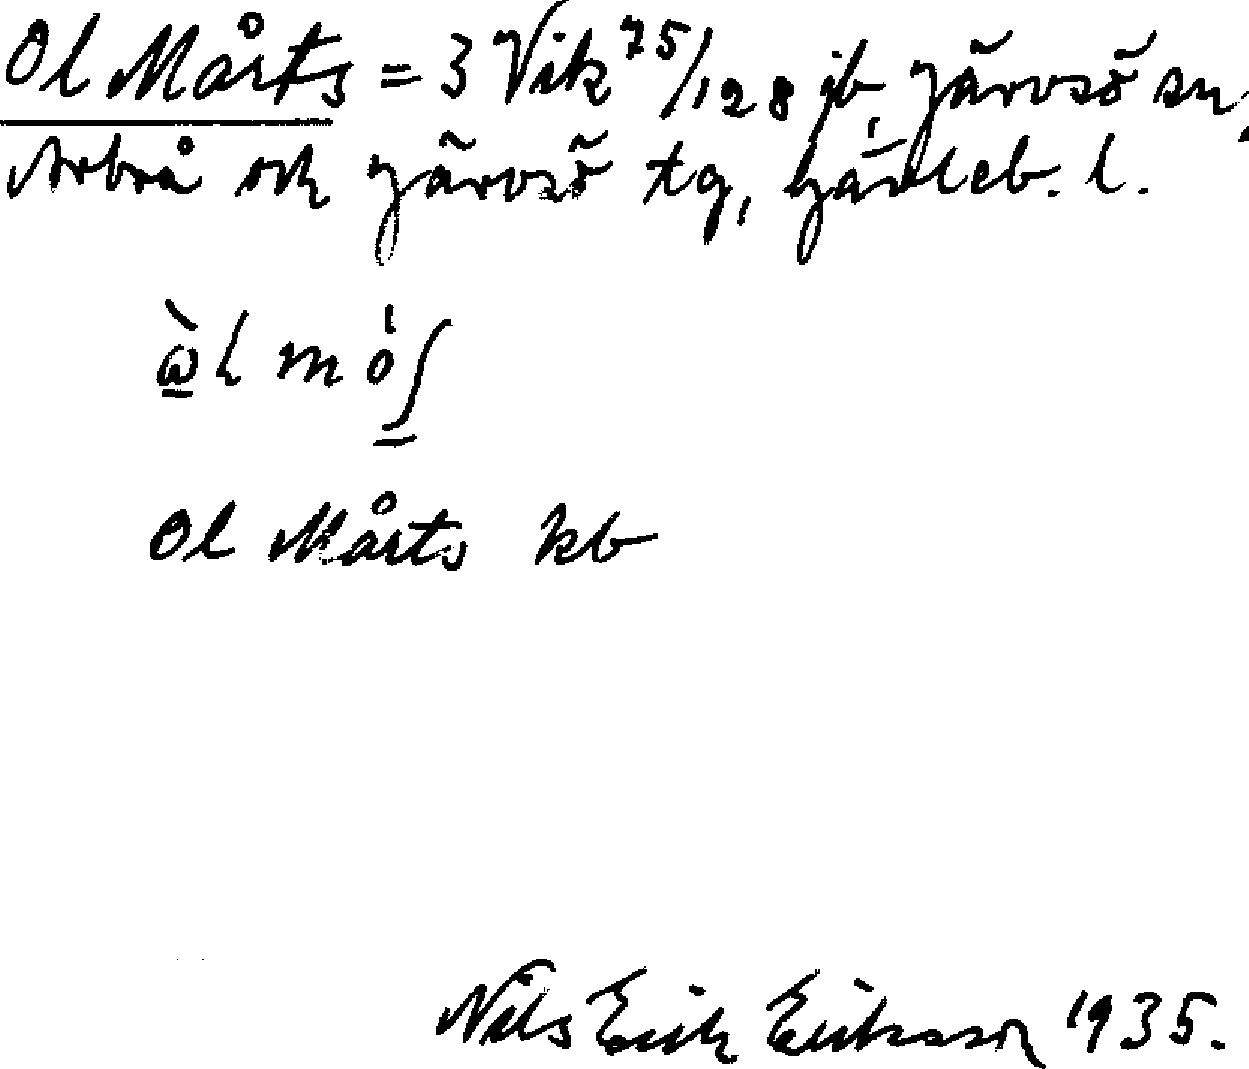 Ol Mårts = 3 Vik 75/128 jb, Järvsö sn,
Arbrå och Järvsö tg, Gävleb. l.
Ol Mårts kb
Nils Erik Eriksson 1935.